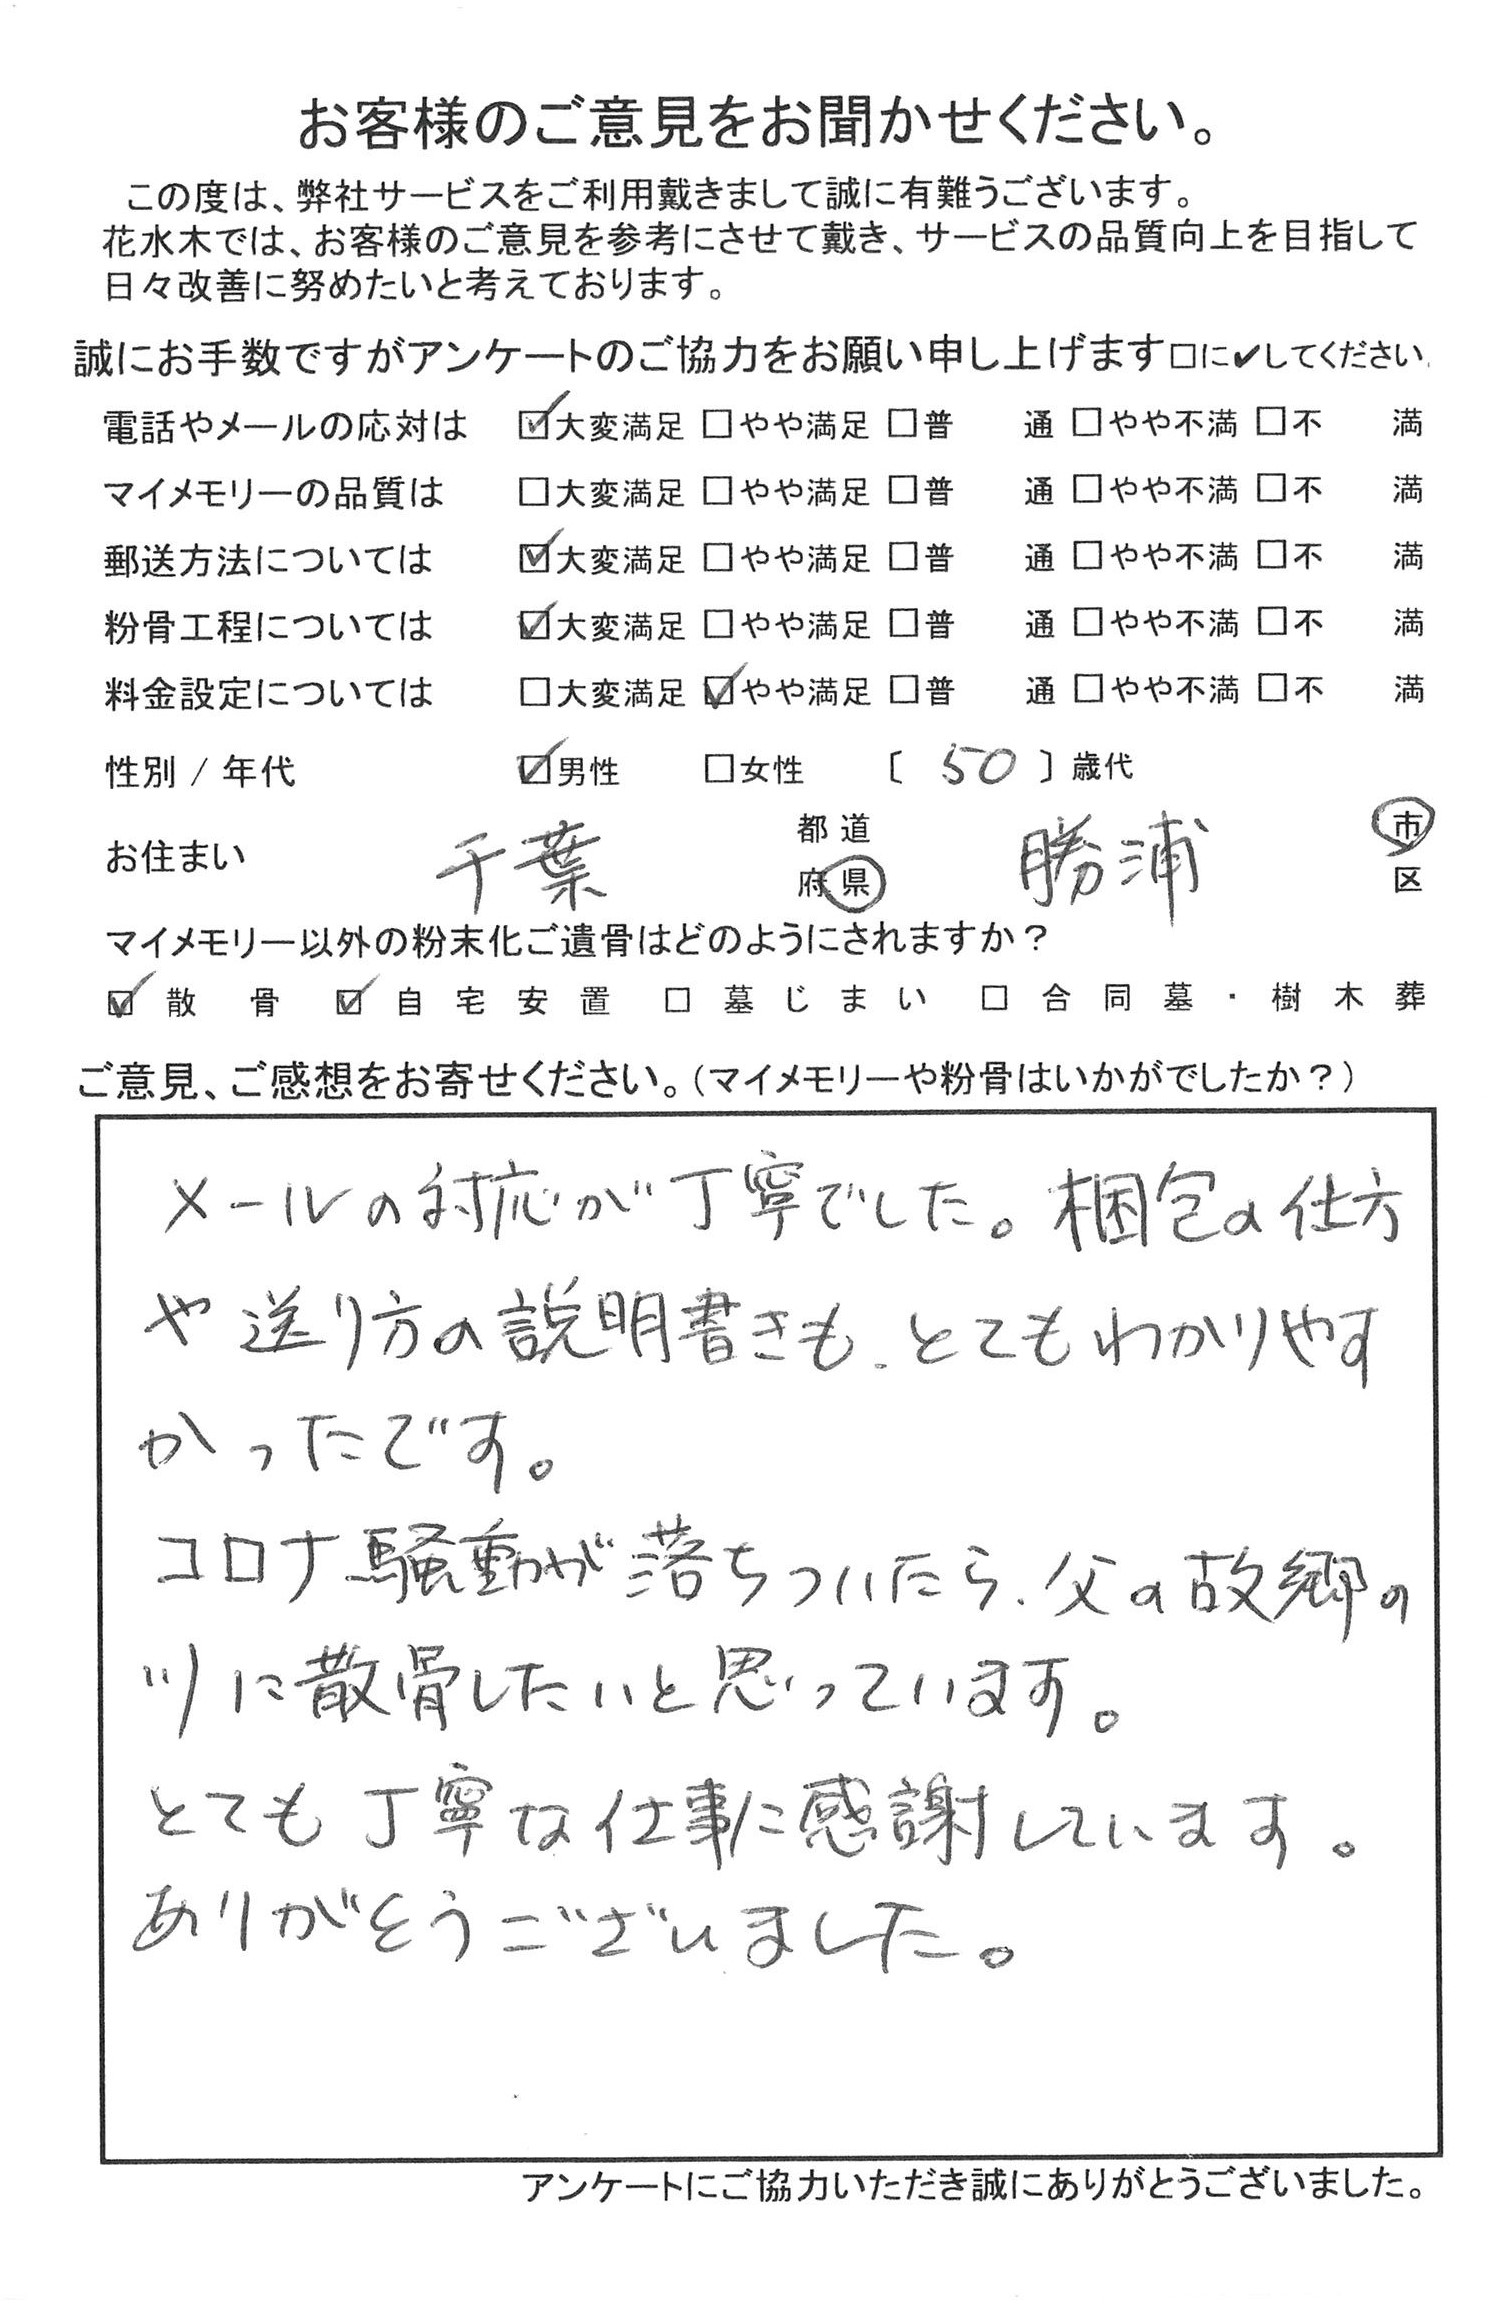 お客様のご意見をお聞かせください。
この度は、弊社サービスをご利用戴きまして誠に有難うございます。
花水木では、お客様のご意見を参考にさせて戴き、サービスの品質向上を目指して
日々改善に努めたいと考えております。
誠にお手数ですがアンケートのご協力をお願い申し上げます□に✔してください.
電話やメールの応対は ☑大変満足 □やや満足 □普 通 □やや不満 □不 満
マイメモリーの品質は □大変満足 □やや満足 □普 通 □やや不満 □不 満
郵送方法については ☑大変満足 □やや満足 □普 通 □やや不満 □不 満
粉骨工程については ☑大変満足 □やや満足 □普 通 □やや不満 □不 満
料金設定については □大変満足 ☑やや満足 □普 通 □やや不満 □不 満
性別 / 年代 ☑男性 □女性 〔 50 〕歳代
お住まい 千葉 都道府県 勝浦 市区
マイメモリー以外の粉末化ご遺骨はどのようにされますか？
☑ 散骨 ☑ 自宅安置 □ 墓じまい □ 合同墓・樹木葬
ご意見、ご感想をお寄せください。（マイメモリーや粉骨はいかがでしたか？）
メールの対応が丁寧でした。梱包の仕方
や送り方の説明書きも、とてもわかりやす
かったです。
コロナ騒動が落ちついたら、父の故郷の
川に散骨したいと思っています。
とても丁寧な仕事に感謝しています。
ありがとうございました。
アンケートにご協力いただき誠にありがとうございました。